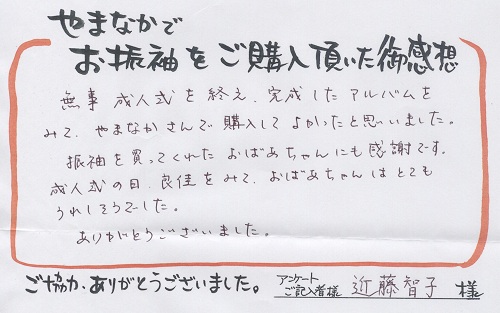 やまなかで
お振袖をご購入頂いた御感想
無事 成人式を終え、完成したアルバムを
みて、やまなかさんで購入してよかったと思いました。
振袖を買ってくれた おばあちゃんにも感謝です。
成人式の日、良佳をみて、おばあちゃんはとても
うれしそうでした。
ありがとうございました。
ご協力、ありがとうございました。 アンケートご記入者様 近藤智子 様